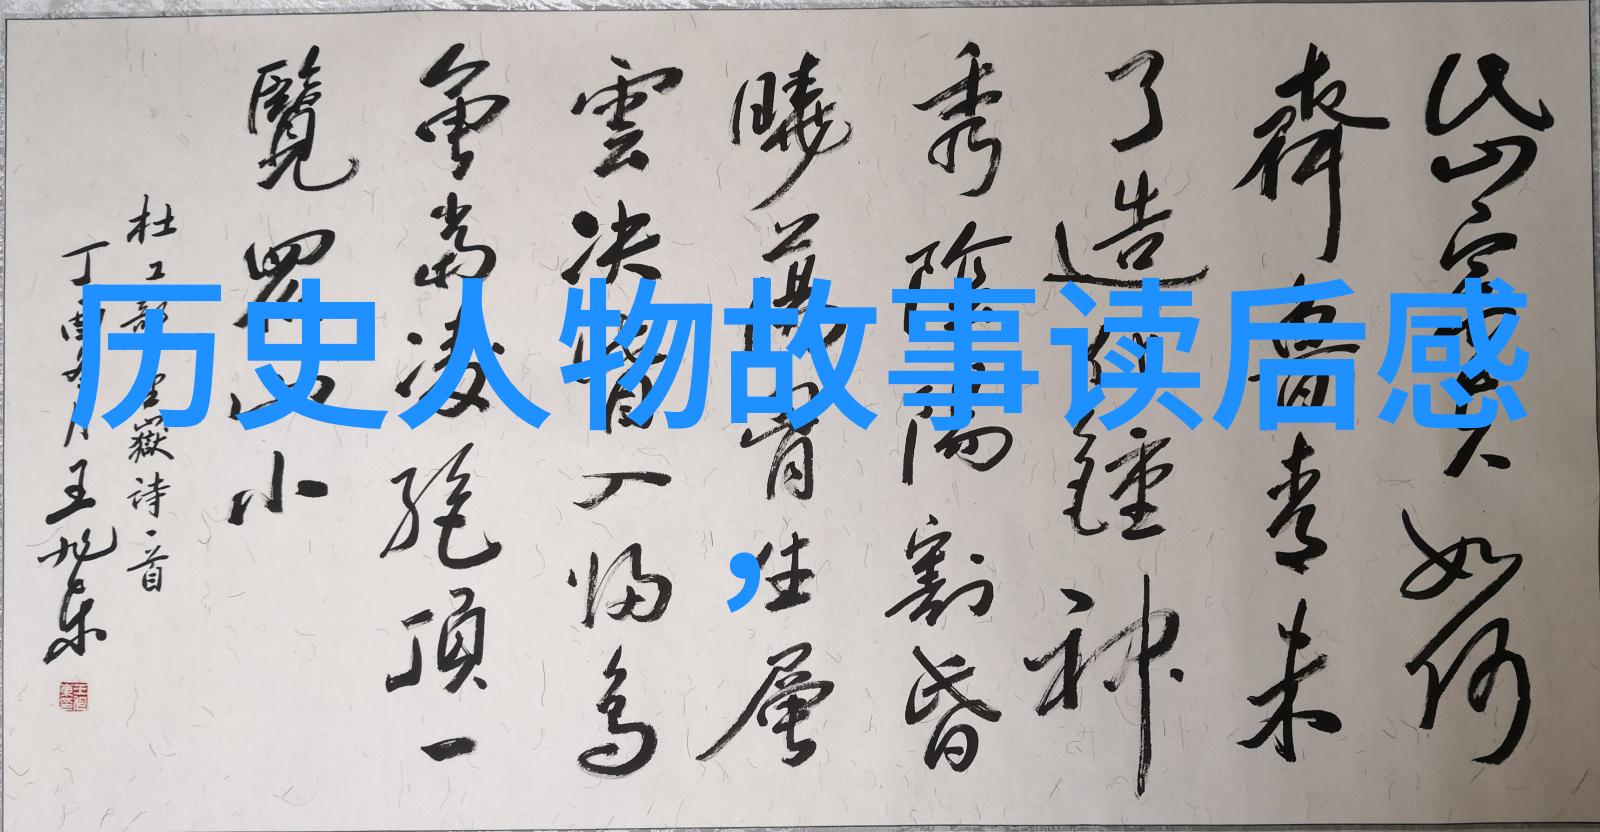 历史人物故事读后感
,
岱宗夫如何
齊魯青未
了造化鍾神
秀陰陽割昏
曉蕩胸生層
雲决眥入歸鳥
會當凌絕頂一
覽眾山小
杜工部望嶽詩一首
丁酉月王旭东